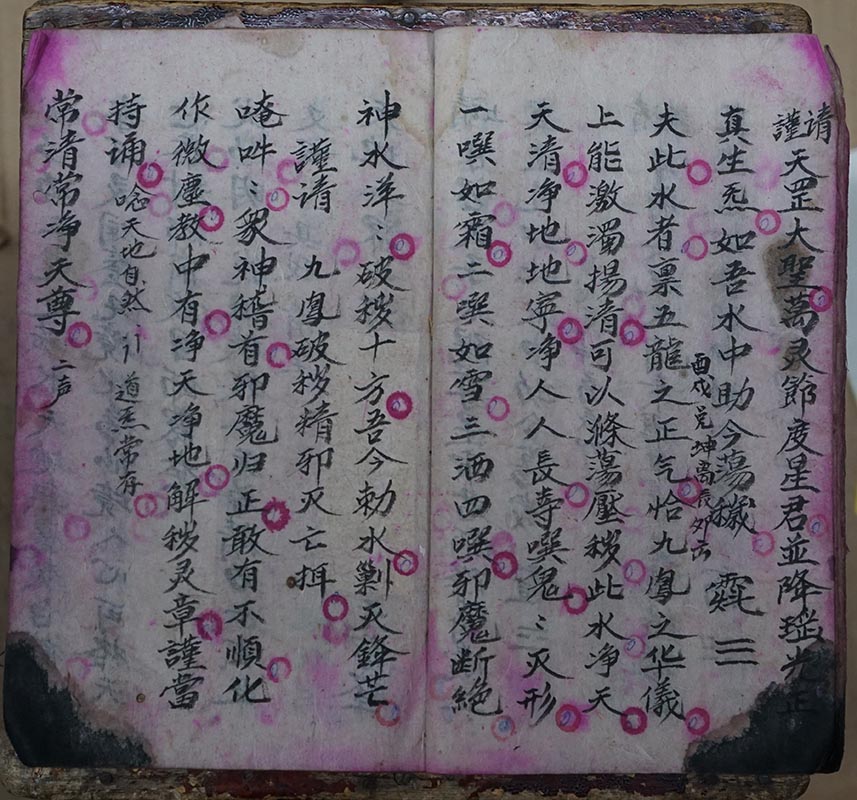 謹请天罡大聖萬灵節度星君並降瑶光正
真生炁如吾水中助今蕩穢 三
酉戌兑坤离
夫此水者禀五龍之正气恰九鳳之华儀
上能激濁揚清可以滌蕩壓秽此水净天
天清净地地寕净人人長寿噀鬼〻灭形
一噀如霜二噀如雪三洒四噀邪魔断绝
神水洋〻破秽十方吾今勅水劃灭鋒芒
謹请 九鳳破秽精邪灭亡
唵吽〻衆神稽有邪魔归正敢有不順化
作微塵教中有净天净地解秽灵章謹當
持诵 唸天地自然 引 道炁常存
常清常净天尊 二声